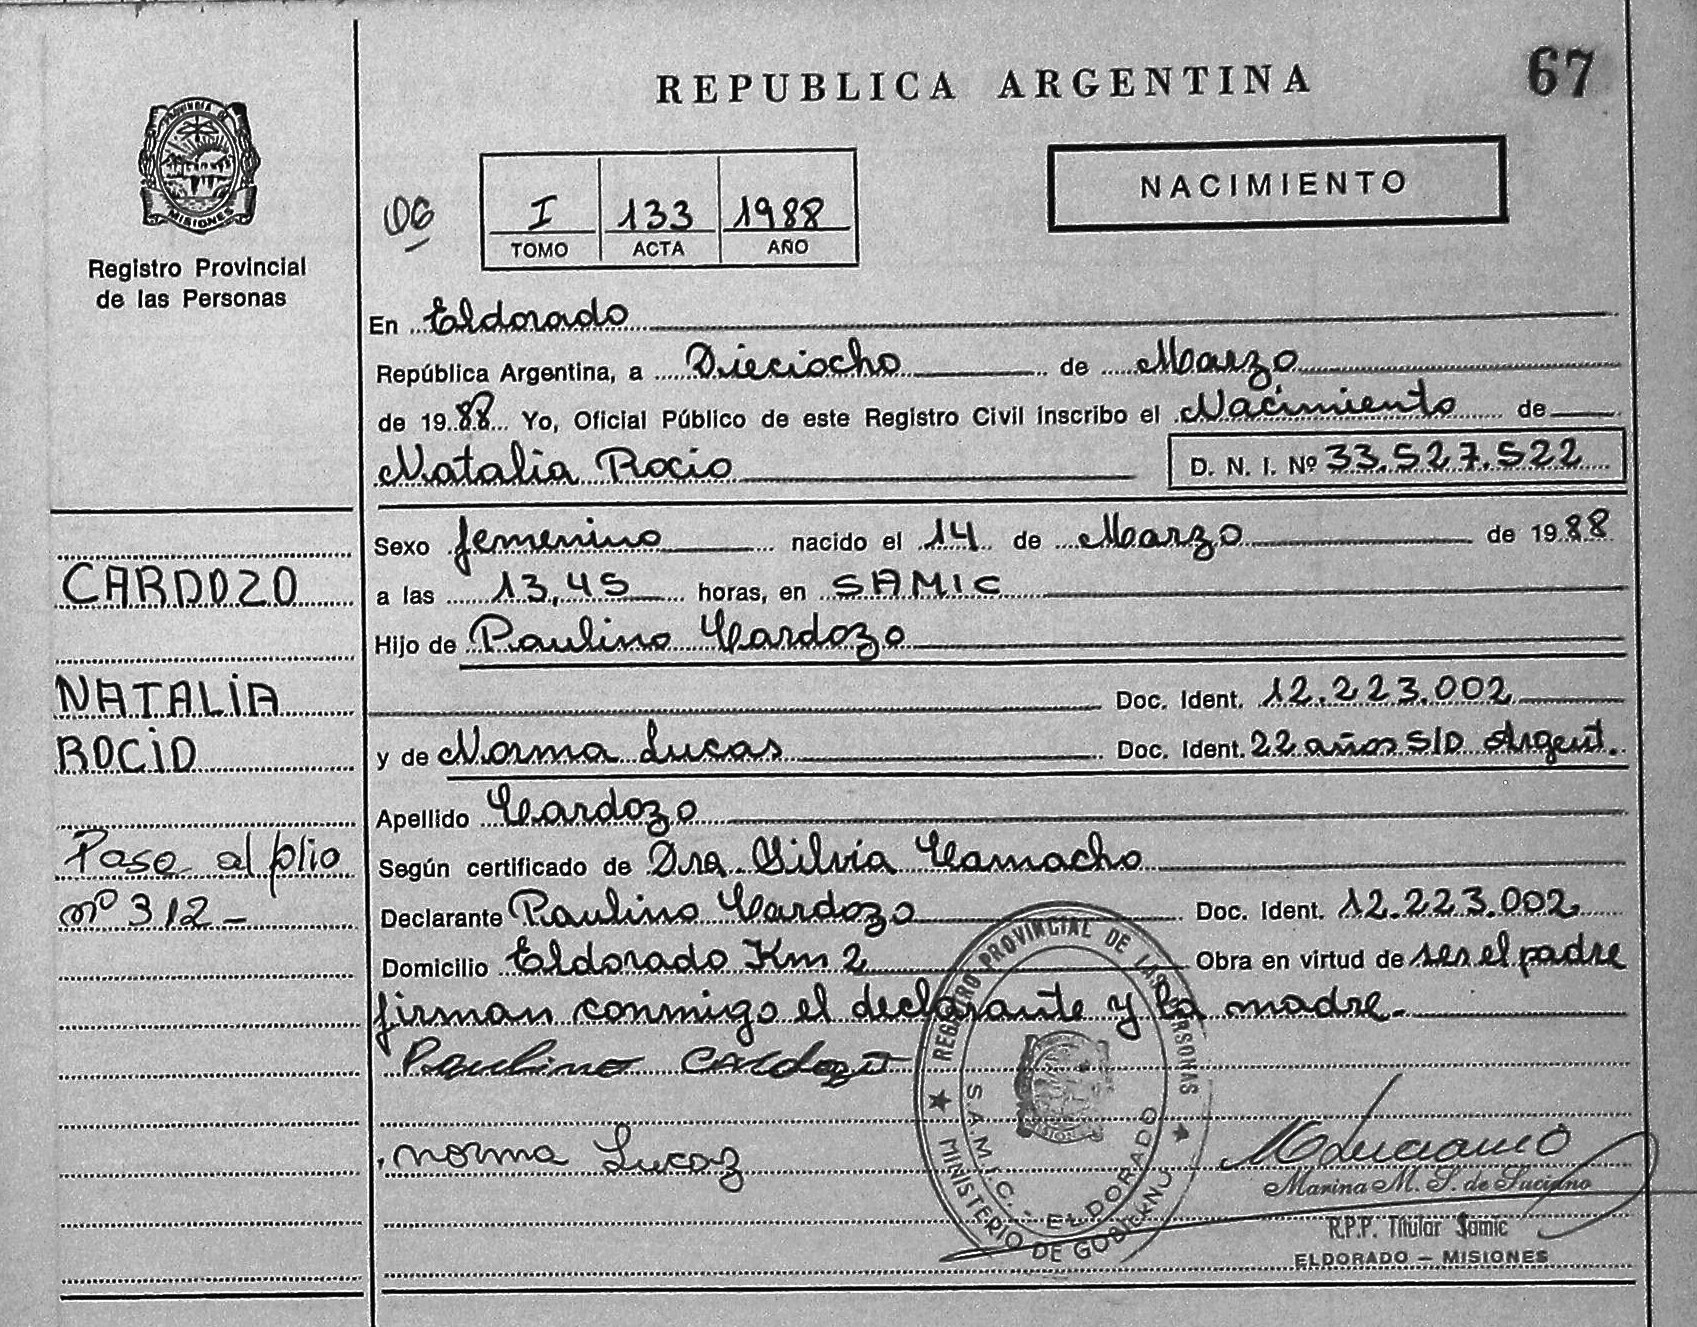 REPUBLICA ARGENTINA
67
PROVINCIA DE
MISIONES
Registro Provincial
de las Personas
NACIMIENTO
I 133 1988
TOMO ACTA AÑO
En Eldorado
República Argentina, a Dieciocho de Marzo
de 1988 Yo, Oficial Público de este Registro Civil inscribo el Nacimiento de
Natalia Rocio D. N. I. Nº 33.527.522
Sexo femenino nacido el 14 de Marzo de 1988
a las 13,45 horas, en SAMIC
Hijo de Paulino Cardozo
Doc. Ident. 12.223.002
y de Norma Lucas Doc. Ident. 22 años S/D Argent.
Apellido Cardozo
Según certificado de Dra. Silvia Camacho
Declarante Paulino Cardozo Doc. Ident. 12.223.002
Domicilio Eldorado Km 2 Obra en virtud de ser el padre
firman conmigo el declarante y la madre.
Paulino Cardozo
norma Lucaz
CARDOZO
NATALIA
ROCIO
Pase al folio
nº 312-
REGISTRO PROVINCIAL DE LAS PERSONAS
S.A.M.I.C. - ELDORADO
MINISTERIO DE GOBIERNO
MISIONES
Marina M. S. de Luciano
R.P.P. Titular Samic
ELDORADO - MISIONES